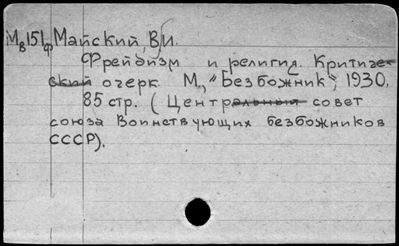 Мв151ф Майский, В.И.
Фрейдизм и религия. Критичек
ский очерк М., "Безбожник", 1930.
85 стр. (Центральный совет
союза Воинствующих безбожников
СССР).